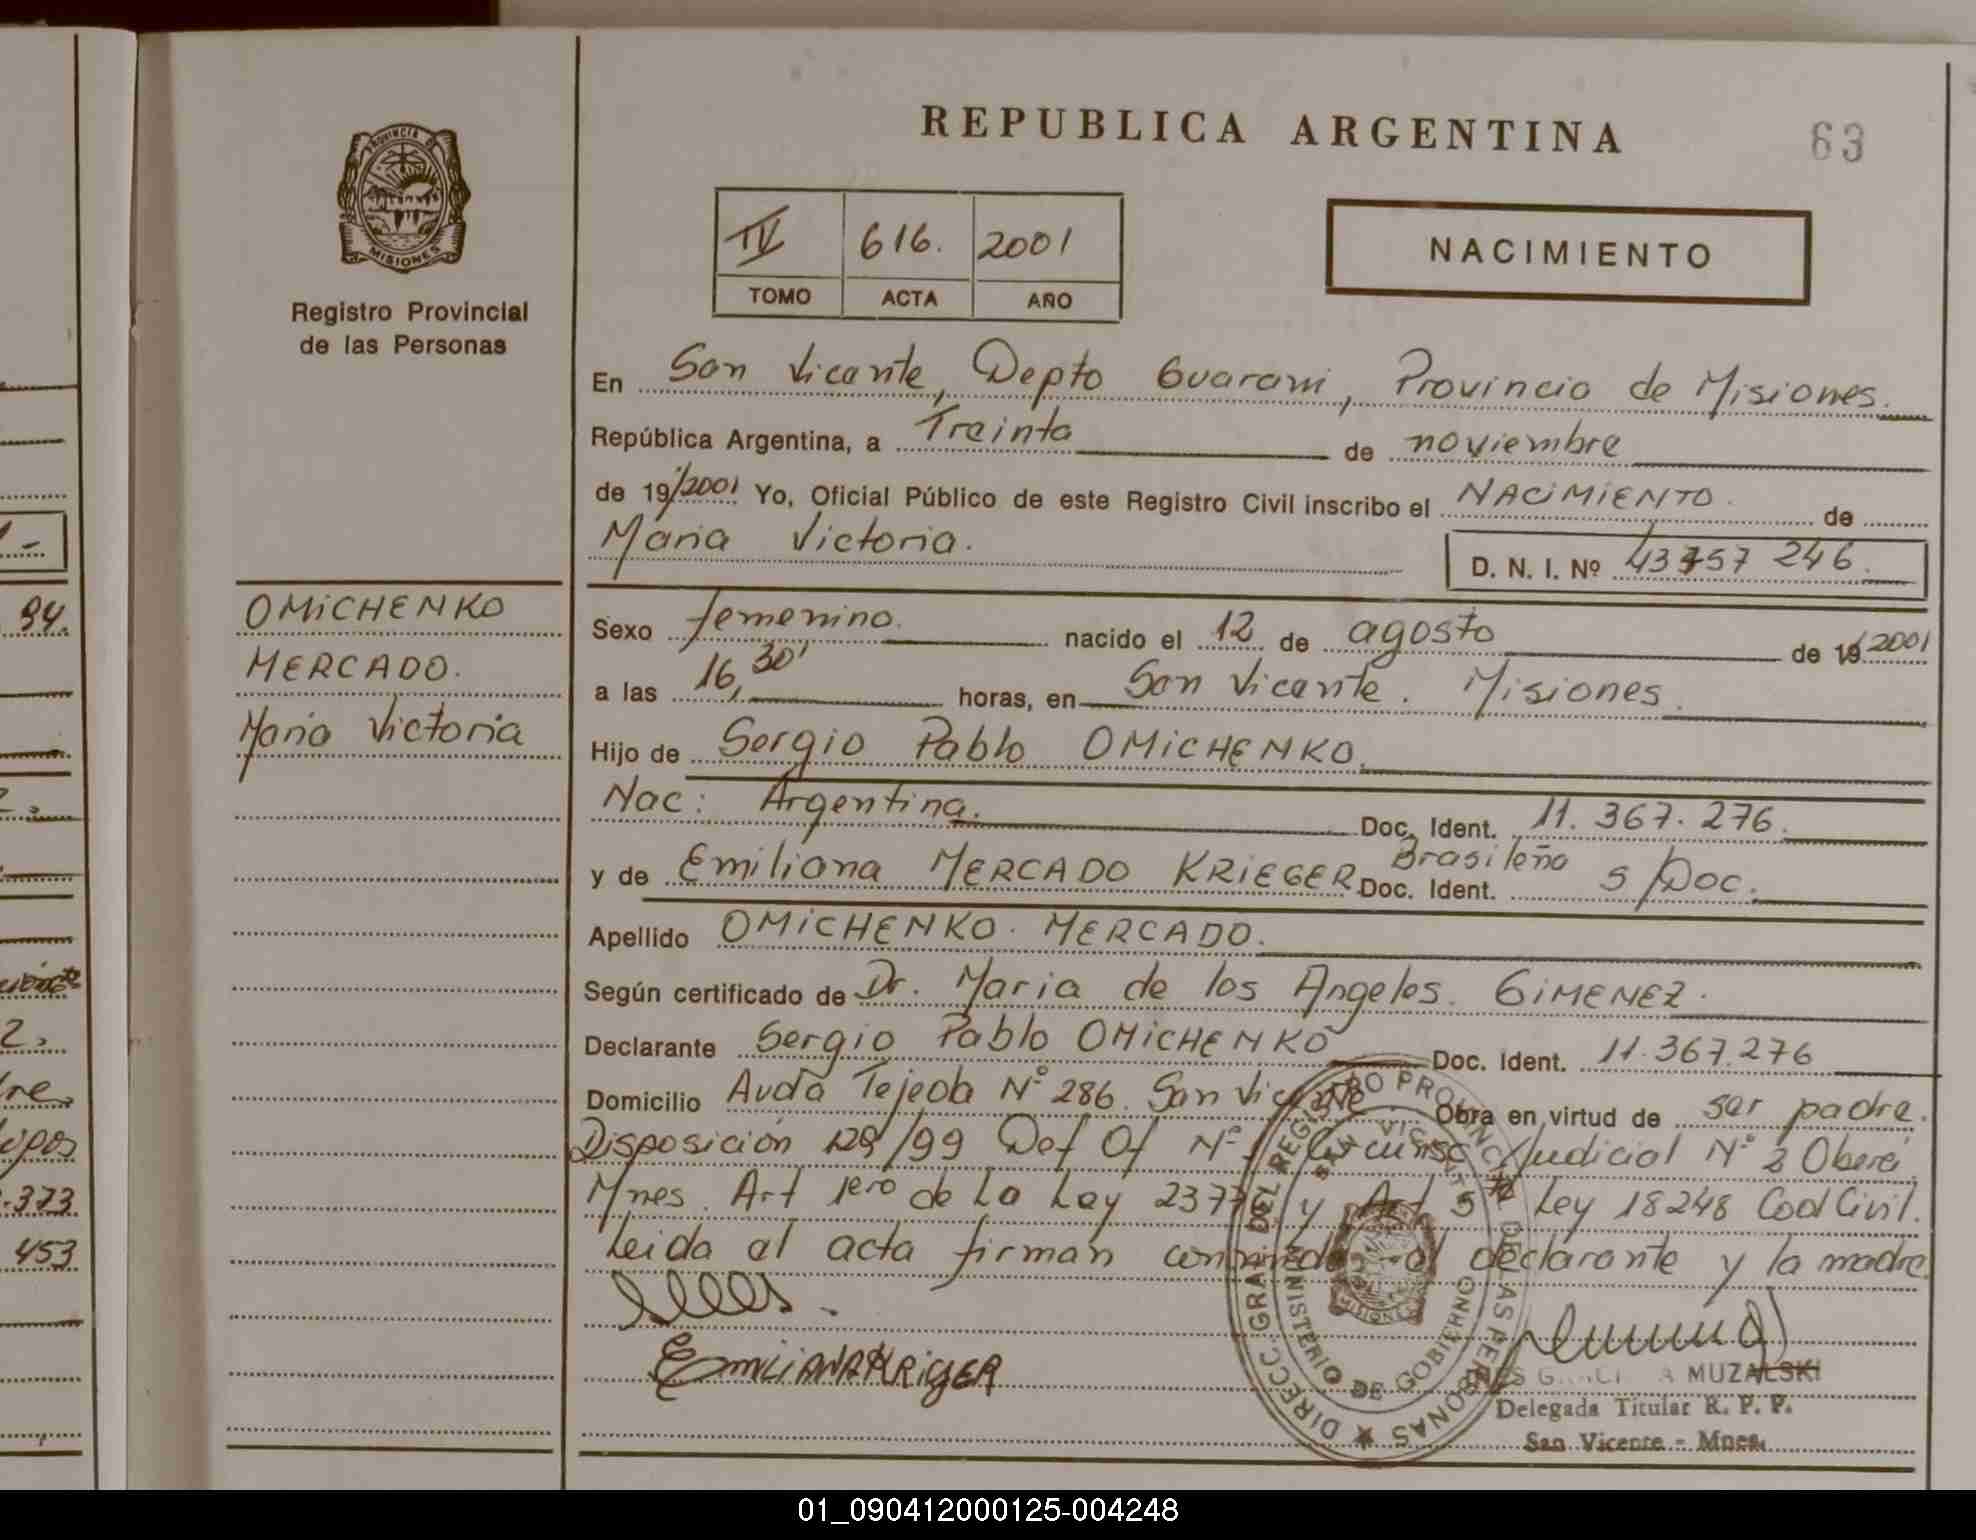 REPUBLICA ARGENTINA
63
PROVINCIA D
MISIONES
Registro Provincial
de las Personas
IV 616. 2001
TOMO ACTA AÑO
NACIMIENTO
En San Vicente, Depto Guarani, Provincia de Misiones.
República Argentina, a Treinta de noviembre
de 19/2001 Yo, Oficial Público de este Registro Civil inscribo el NACIMIENTO. de
Maria Victoria.
D. N. I. Nº 43 757 246.
OMICHENKO
MERCADO.
Maria Victoria
Sexo femenino. nacido el 12 de agosto de 19/2001
a las 16,30' horas, en San Vicente. Misiones.
Hijo de Sergio Pablo OMICHENKO.
Nac: Argentina. Doc. Ident. 11.367.276.
y de Emiliana MERCADO KRIEGER Brasileña Doc. Ident. S/Doc.
Apellido OMICHENKO. MERCADO.
Según certificado de Dr. Maria de los Angeles. GIMENEZ.
Declarante Sergio Pablo OMICHENKO Doc. Ident. 11.367.276
Domicilio Avda Tejeda Nº 286. San Vicente Obra en virtud de ser padre.
Disposición 129/99 Def Of Nº 1 Circunsc Judicial Nº 2 Oberá
Mnes. Art 1ero de La Ley 23 y Art 5 Ley 18248 Cod Civil.
Leida el acta firman conmigo el declarante y la madre
EMILIANA KRIGER
DIRECC. GRAL. DEL REGISTRO PROVINCIAL DE LAS PERSONAS
SAN VICENTE
MINISTERIO DE GOBIERNO
MISIONES
MUZALSKI
Delegada Titular R. P. P.
San Vicente - Mnes.
94.
2.
2.
373
453
01_090412000125-004248